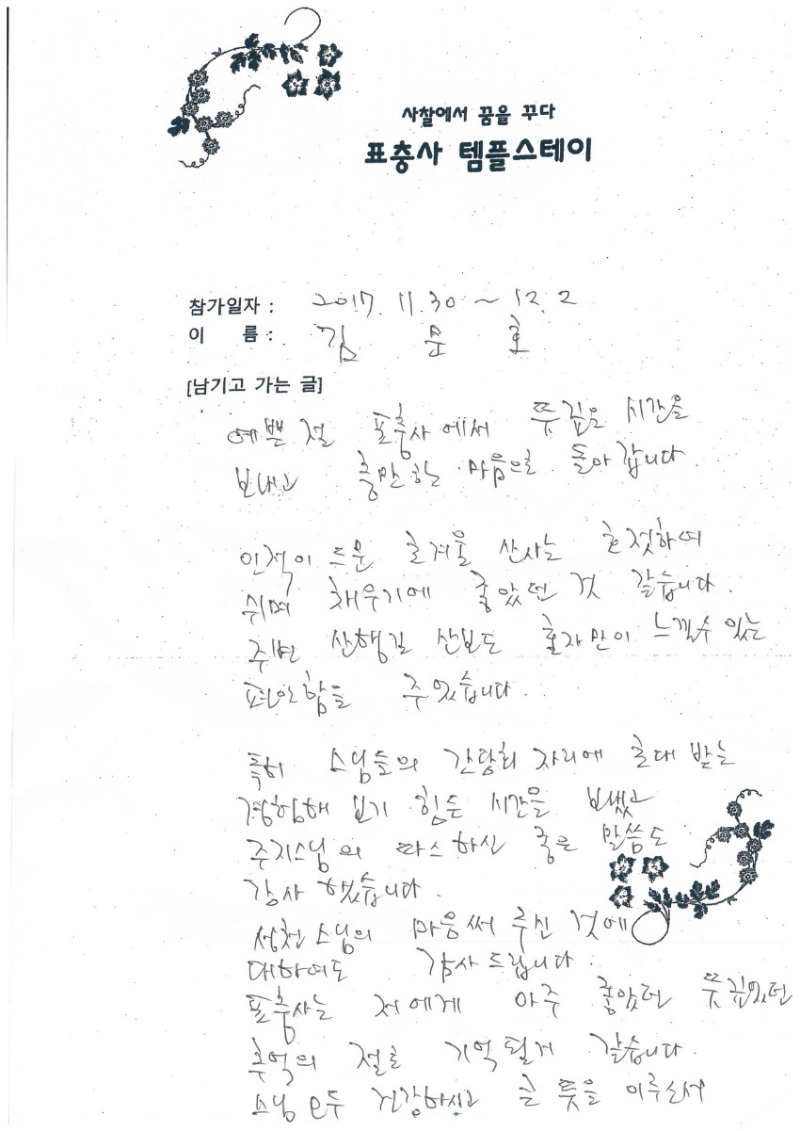 사찰에서 꿈을 꾸다
표충사 템플스테이
참가일자 : 2017. 11. 30 ~ 12. 2
이 름 : 김 문 호
[남기고 가는 글]
예쁜 절 표충사에서 뜻깊은 시간을
보내고 충만하는 마음으로 돌아갑니다.
인적이 드문 초겨울 산사는 호젓하여
쉬며 채우기에 좋았던 것 같습니다.
주변 산행길 산보도 혼자만이 느낄수 있는
편안함을 주었습니다.
특히 스님들의 간담회 자리에 초대 받는
경험해 보기 힘든 시간을 보냈고
주지스님의 따스하신 좋은 말씀도
감사 했습니다.
스님의 마음써 주신 것에
대하여도 감사드립니다.
표충사는 저에게 아주 좋았던 뜻깊었던
추억의 절로 기억될거 같습니다.
스님 모두 건강하시고 큰 뜻을 이루소서